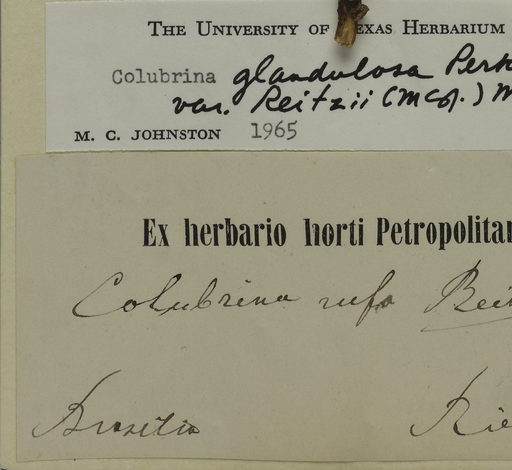 THE UNIVERSITY OF TEXAS HERBARIUM
Colubrina glandulosa Perk
var. Reitzii (MCJ.) M
M. C. JOHNSTON 1965
Ex herbario horti Petropolitan
Colubrina rufa
Brasilia Rie